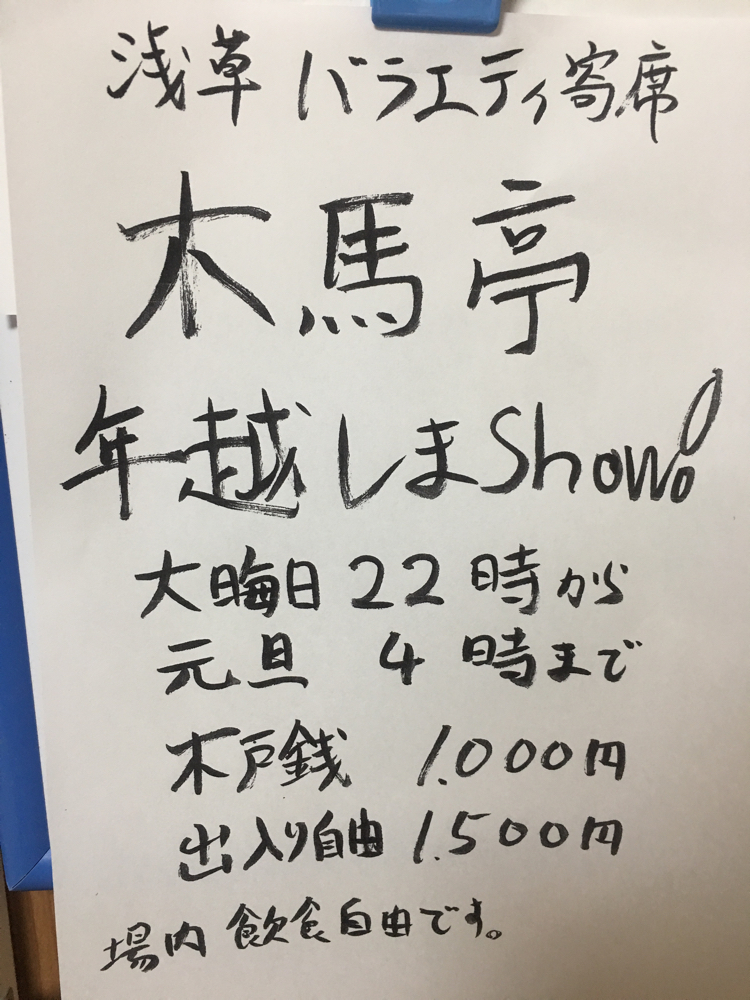 浅草 バラエティ寄席
木馬亭
年越しまShow!
大晦日 22時から
元旦 4時まで
木戸銭 1.000円
出入り自由 1.500円
場内 飲食自由です。